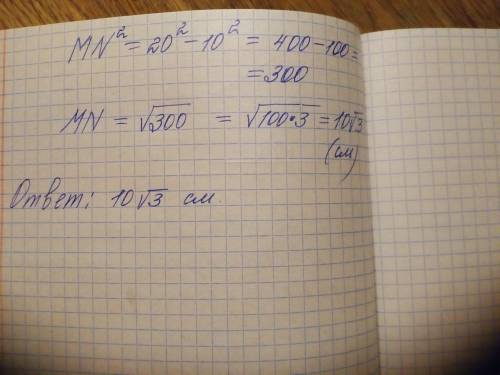 MN² = 20² - 10² = 400 - 100 =
= 300
MN = √300 = √100·3 = 10√3
(см)
Ответ: 10√3 см.